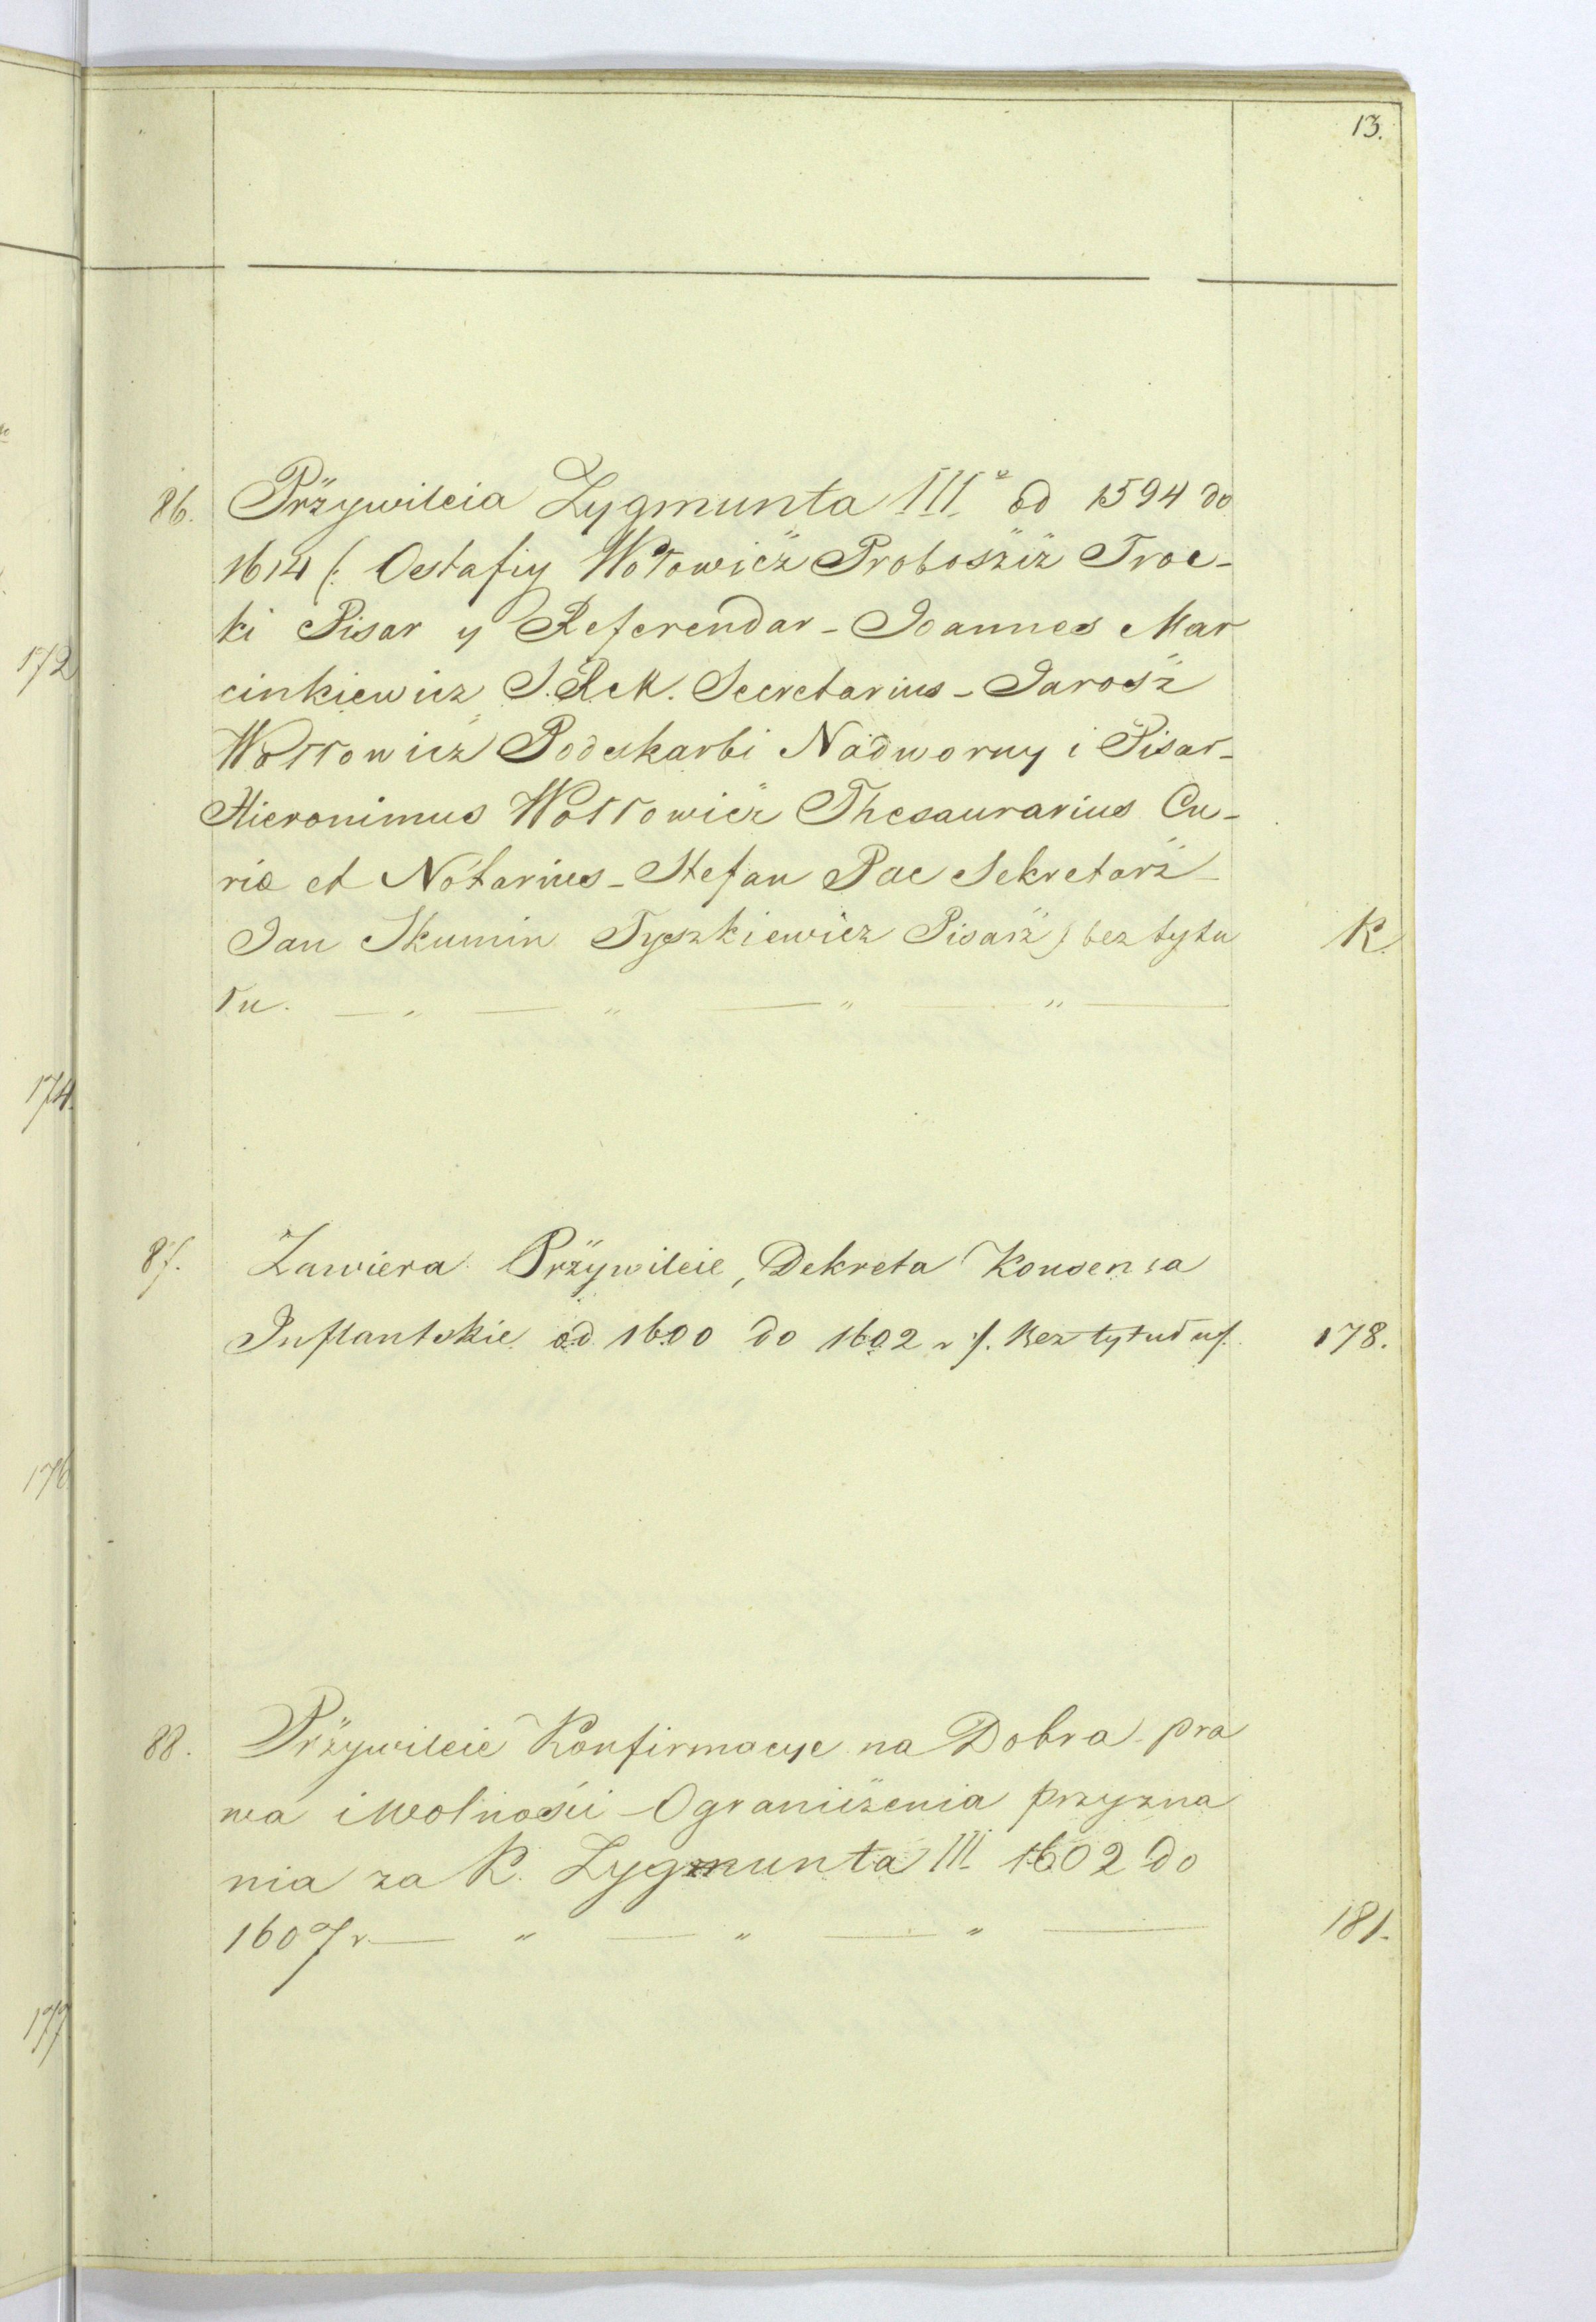 13.
86. Przywileia Zygmunta III° od 1594 do
1614 (: Ostafiy Wołowicz Proboszcz Troc-
ki Pisar y Referendar - Joannes Mar
cinkiewicz S. R. M. Secretarius - Jarosz
Wołłowicz Podskarbi Nadworny i Pisar -
Hieronimus Wołłowicz Thesaurarius Cu-
ria et Notarius - Stefan Pac Sekretarz -
Jan Skumin Tyszkiewicz Pisarz) bez tytu R.
łu. — " — " — " — " —
87. Zawiera Przywileie, Dekreta Konsensa
Inflantskie od 1600 do 1602 r /. Bez tytułu /. 178.
88. Przywileie Konfirmacye na Dobra pra
wa i Wolności - Ograniczenia przyzna
nia za K. Zygmunta III 1602 do
1607 r — " — " — " — 181.
172
174.
176
177